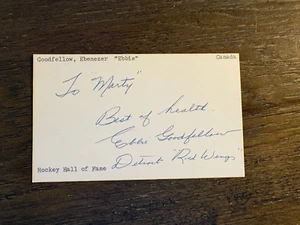 Goodfellow, Ebenezer "Ebbie" Canada
To Marty"
Best of health.
Ebbie Goodfellow
Detroit "Red Wings"
Hockey Hall of Fame